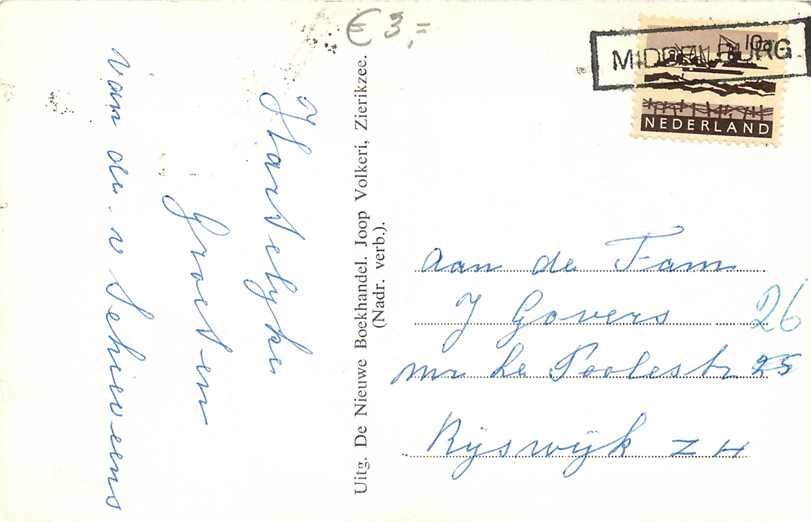 € 3,=
MIDDELBURG
10c
NEDERLAND
Hartelyke
Groeten
van de
Uitg. De Nieuwe Boekhandel. Joop Volkeri, Zierikzee.
(Nadr. verb.).
aan de Fam
J Govers 26
mr Le Poolestr 25
Rijswijk ZH